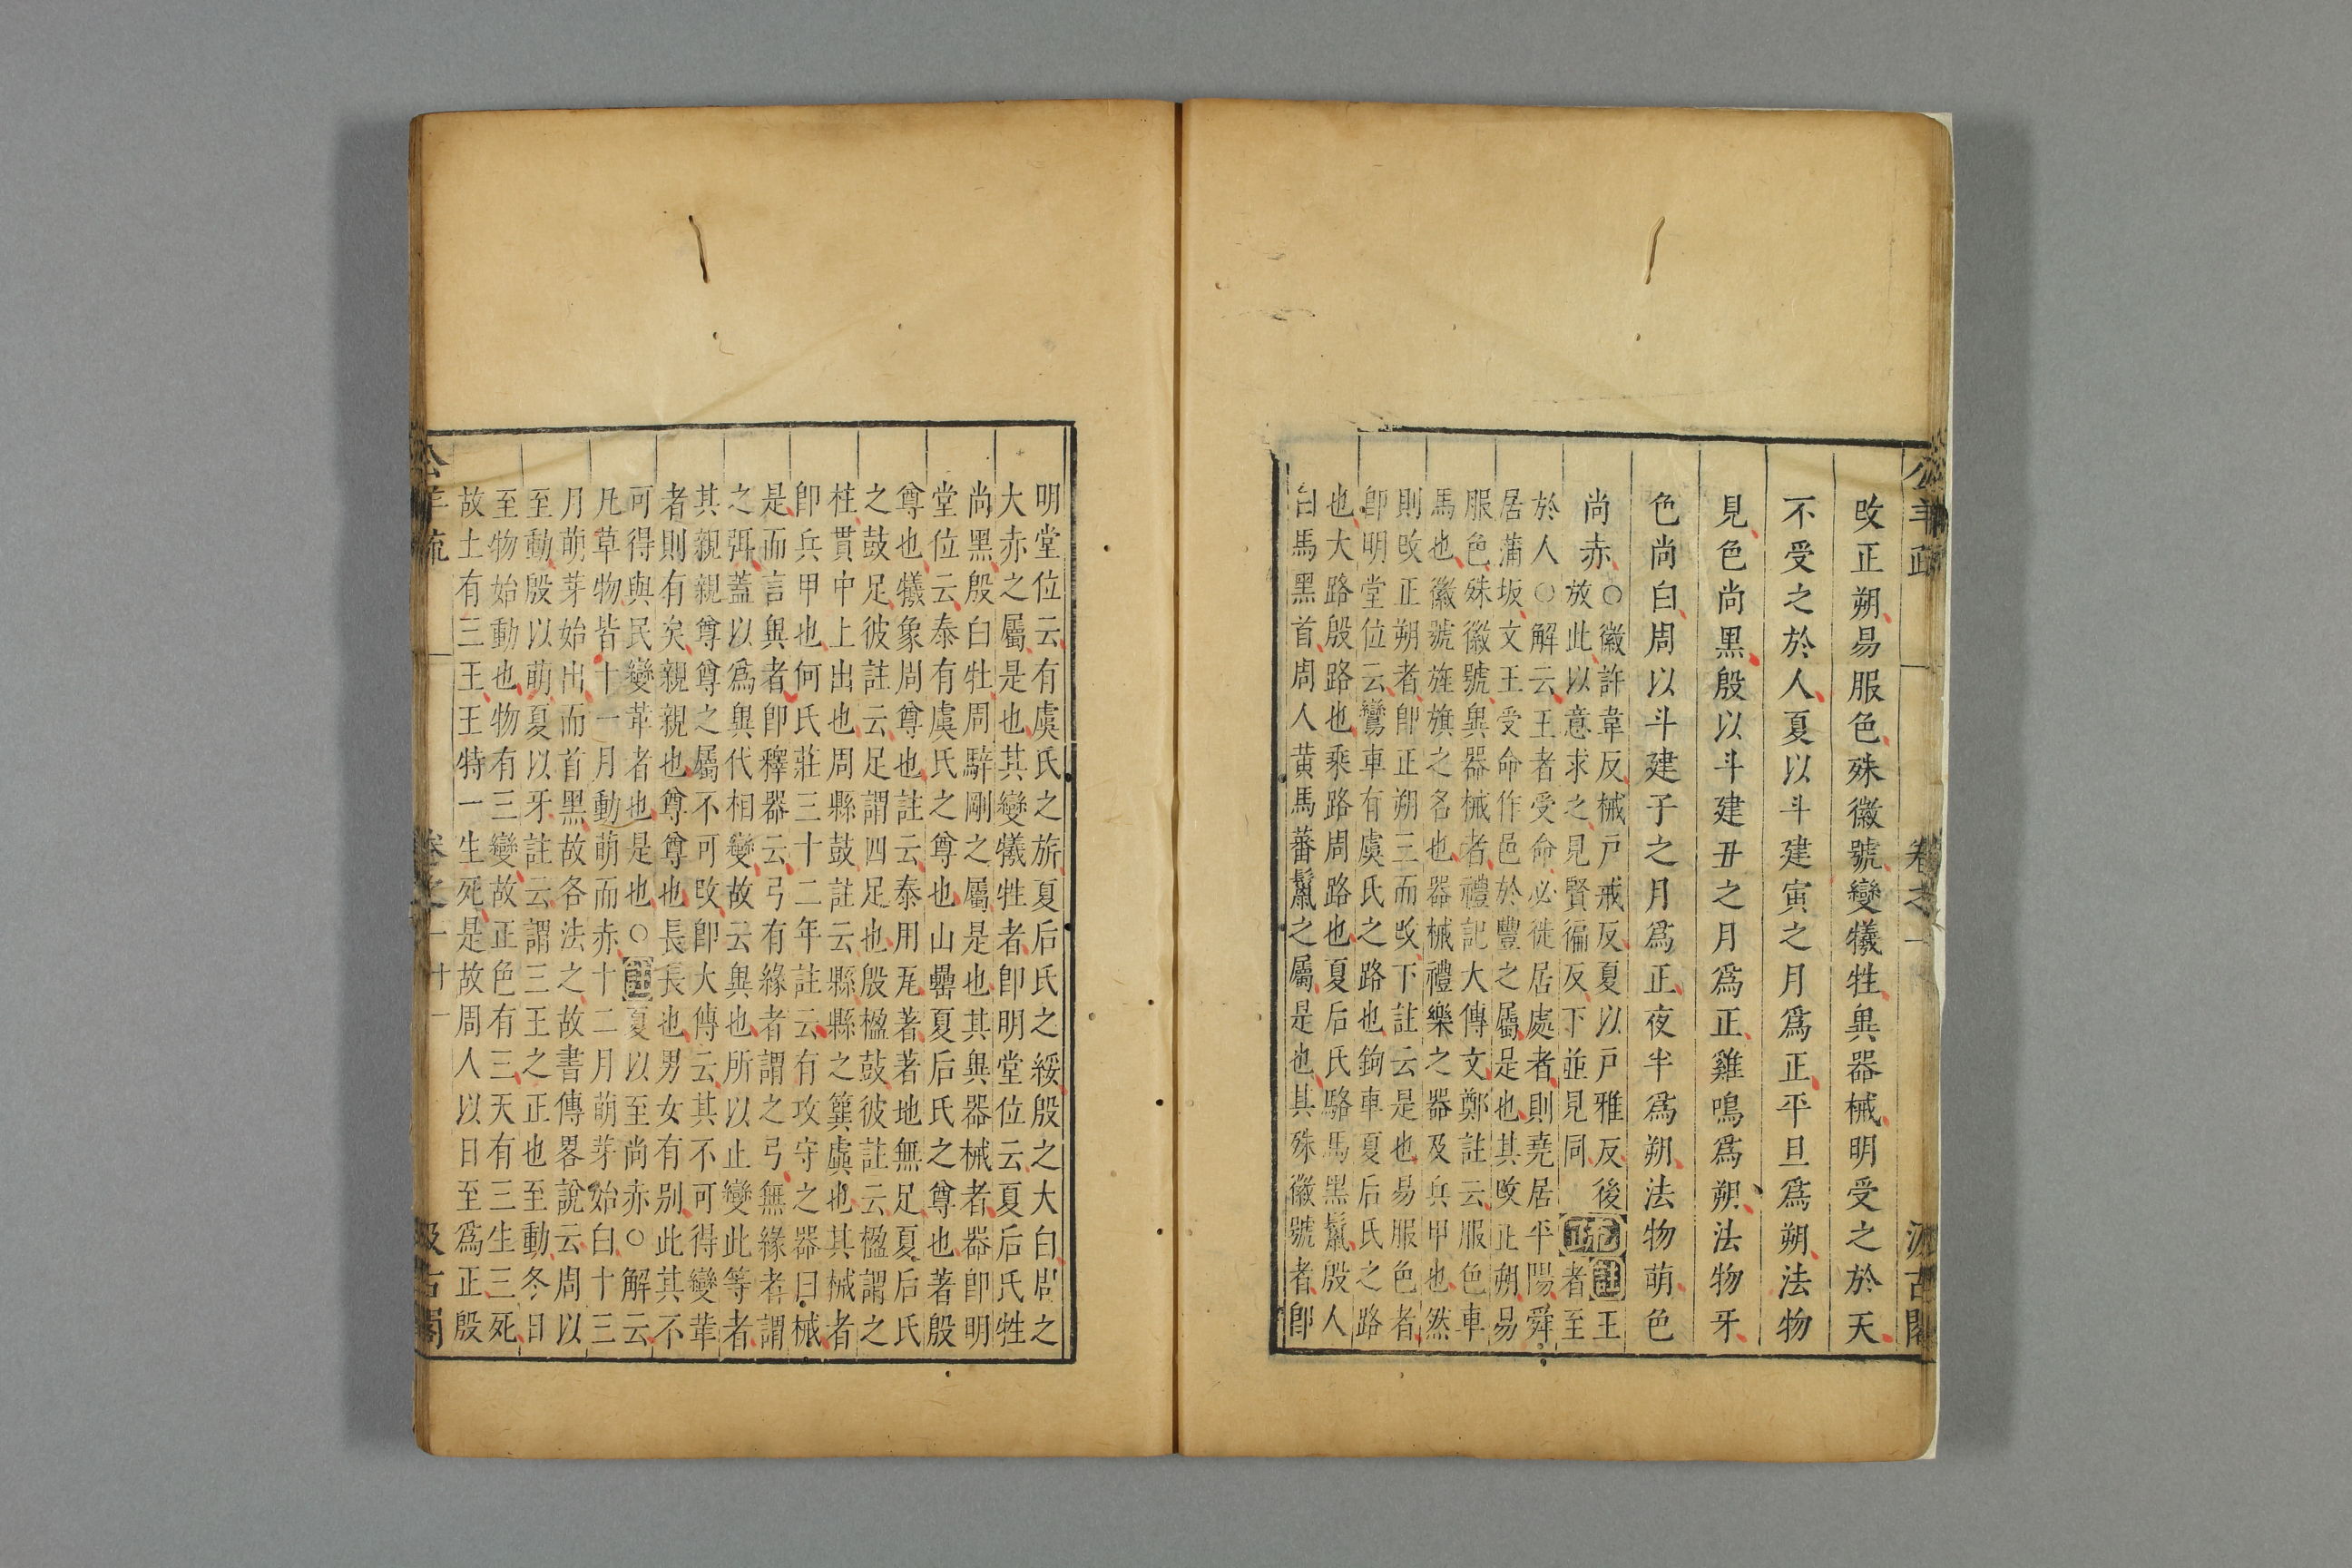 公羊疏 卷之一 汲古閣
改正朔易服色殊徽號變犧牲異器械明受之於天
不受之於人夏以斗建寅之月爲正平旦爲朔法物
見色尚黑殷以斗建丑之月爲正雞鳴爲朔法物牙
色尚白周以斗建子之月爲正夜半爲朔法物萌色
尚赤
○徽許韋反械戸戒反夏以戸雅反後
放此以意求之見賢徧反下並見同
疏註王者至
於人○解云王者受命必徙居處者則堯居平陽舜
居蒲坂文王受命作邑於豐之屬是也其改正朔易
服色殊徽號異器械者禮記大傳文鄭註云服色車
馬也徽號旌旗之名也器械禮樂之器及兵甲也然
則改正朔者卽正朔三而改下註云是也易服色者
卽明堂位云鸞車有虞氏之路也鉤車夏后氏之路
也大路殷路也乘路周路也夏后氏駱馬黑鬣殷人
白馬黑首周人黃馬蕃鬣之屬是也其殊徽號者卽
明堂位云有虞氏之旂夏后氏之綏殷之大白周之
大赤之屬是也其變犧牲者卽明堂位云夏后氏牲
尚黑殷白牡周騂剛之屬是也其異器械者器卽明
堂位云泰有虞氏之尊也山罍夏后氏之尊也著殷
尊也犧象周尊也註云泰用瓦著著地無足夏后氏
之鼓足彼註云足謂四足也殷楹鼓彼註云楹謂之
柱貫中上出也周縣鼓註云縣縣之簨虡也其械者
卽兵甲也何氏莊三十二年註云有攻守之器曰械
是而言異者卽釋器云弓有緣者謂之弓無緣者謂
之弭蓋以爲異代相變故云異也所以止變此等者
其親親尊尊之屬不可改卽大傳云其不可得變革
者則有矣親親也尊尊也長長也男女有別此其不
可得與民變革者也是也○註夏以至尚赤○解云
凡草物皆十一月動萌而赤十二月萌芽始白十三
月萌芽始出而首黑故各法之故書傳畧說云周以
至動殷以萌夏以牙註云謂三王之正也至動冬日
至物始動也物有三變故正色有三天有三生三死
故土有三王王特一生死是故周人以日至爲正殷
公羊疏 卷之一 十一 汲古閣